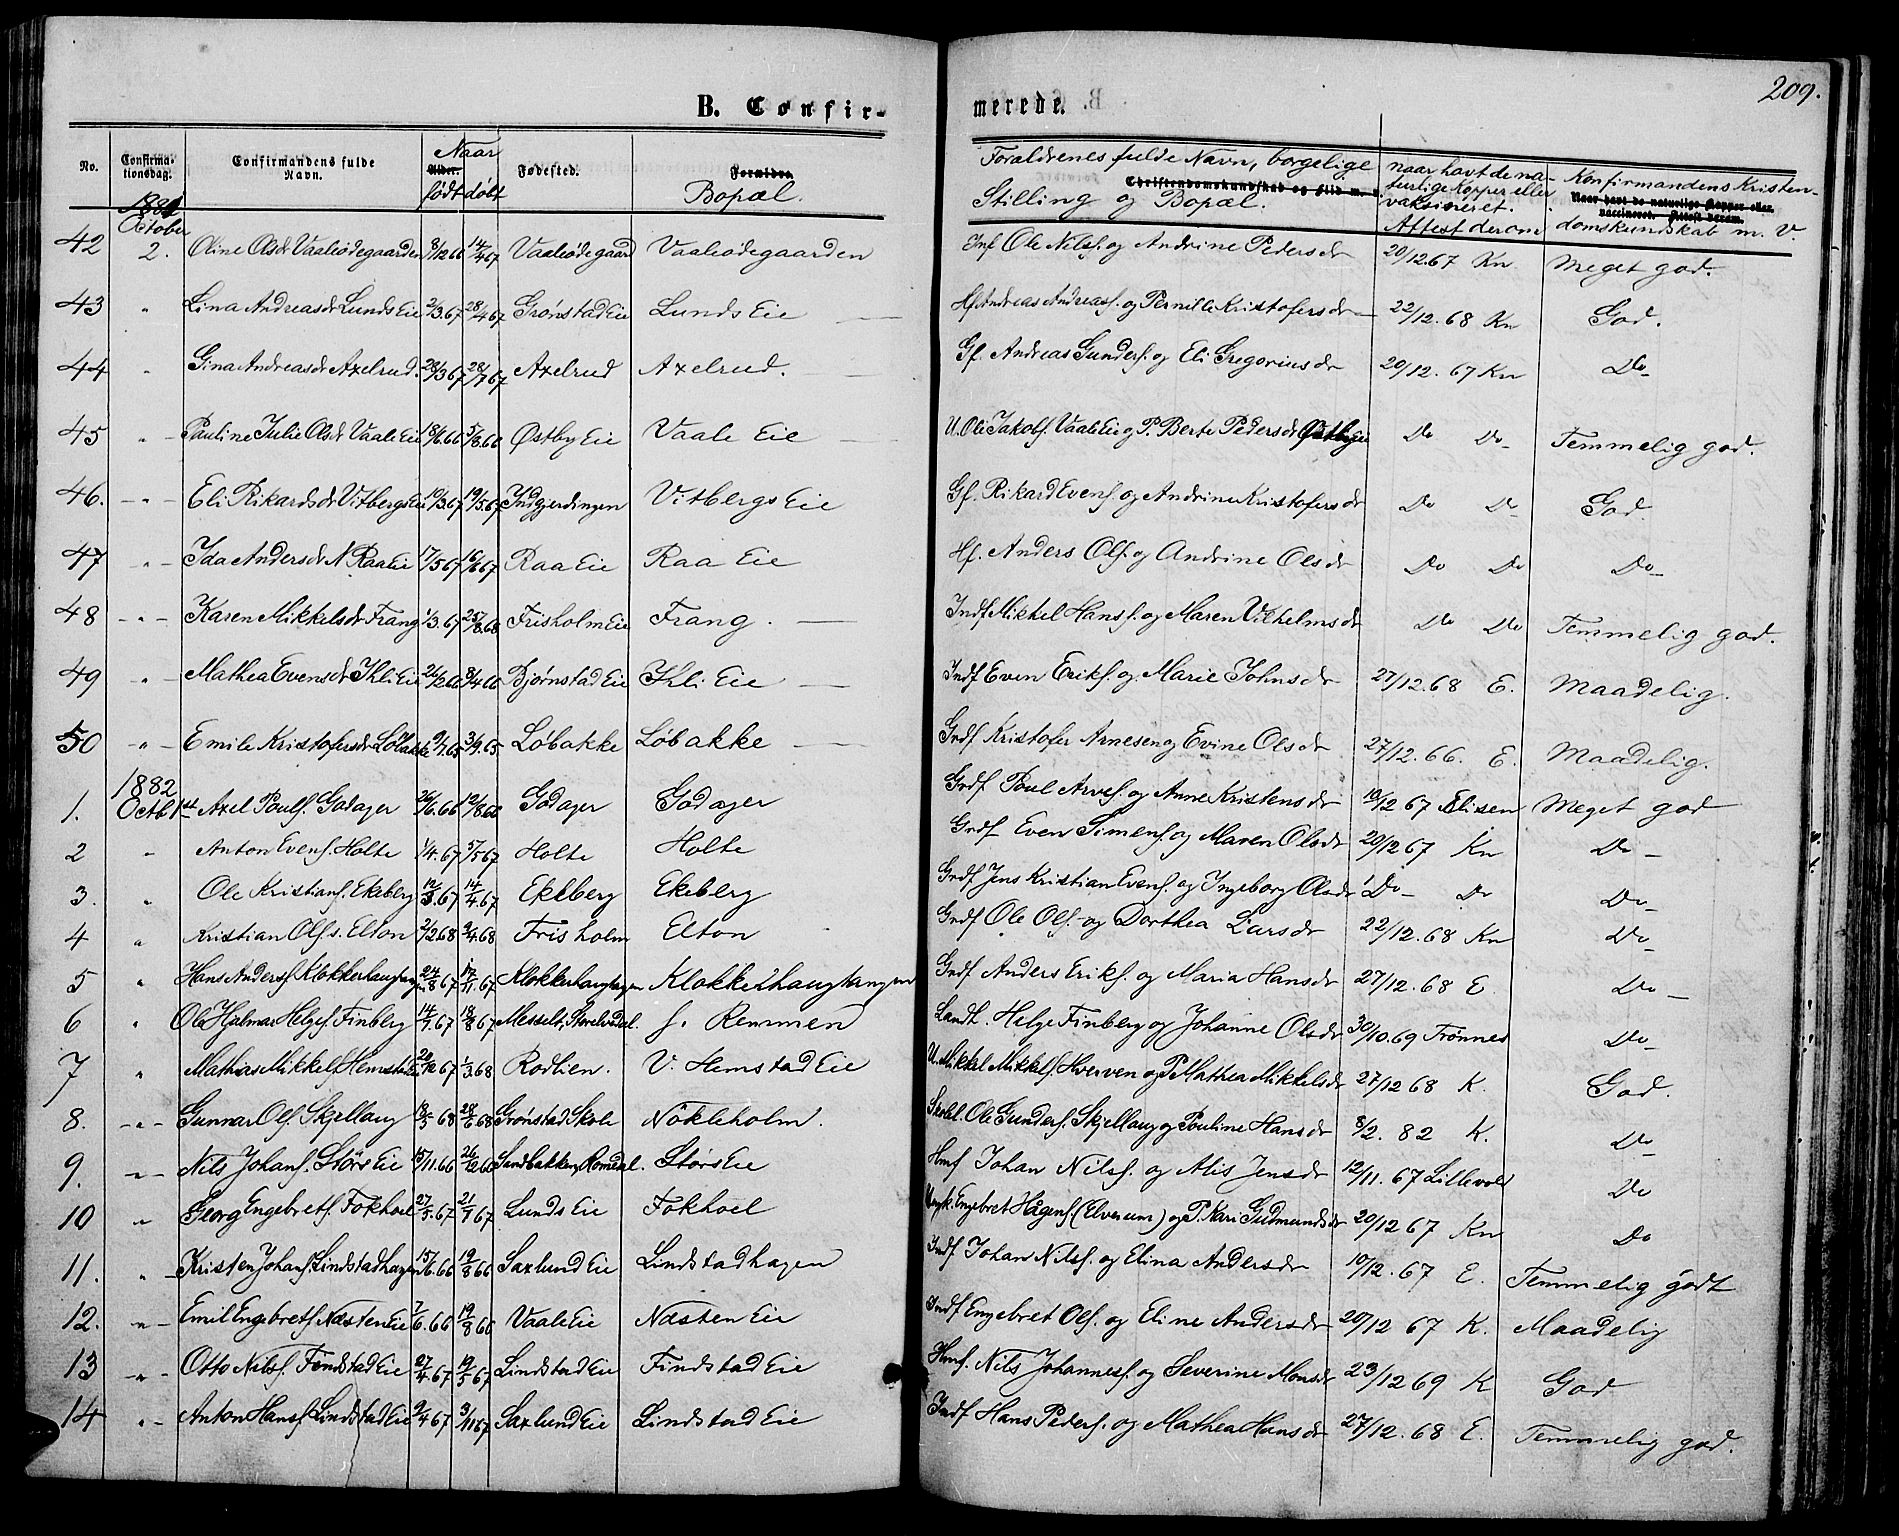 209.
B. Confirmerede.
No. Confirmationsdag. Confirmandens fulde Navn. Naar født døbt Fødested. Bopæl. Forældrenes fulde Navn, borgelige Stilling og Bopæl. naar havt de naturlige Kopper eller vaksineret. Attest derom Konfirmandens Kristendomskundskab m. V.
Alder. Formiden Christendomskundskab og Flid m. v. Naar havt de naturlige Kopper eller vaccineret. Attest derom.
1881 October
42 2. Oline Olsdr Vaaleødegaarden 8/12 66 14/4 67 Vaaleødegaard Vaaleødegaarden Inf Ole Nilss. og Andrine Pedersdr 20/12.67 Kn Meget god.
43 " Lina Andreasdr Lunds Eie 2/3.67 28/4 67 Grønstad Eie Lunds Eie Hf Andreas Andreass. og Pernille Kristofersdr 22/12.68 Kn God.
44 " Gina Andreasdr Axelrud. 28/3 67 28/7 67 Axelrud Axelrud. Gf. Andreas Gunders. og Eli Gregoriusdr 20/12.67 Kn Do
45 " Pauline Julie Olsdr Vaale Eie 18/6.66 5/8.66 Østby Eie Vaale Eie U. Ole Jakobs. Vaale Eie og P. Berte Pedersdr Østby Eie Do Do Temmelig god.
46. " Eli Rikardsdr Vitbergs Eie 10/3.67 19/5.67 Indgjerdingen Vitbergs Eie Gf. Rikard Evens. og Andrine Kristofersdr Do Do God
47 " Ida Andersdr N Raa Eie 17/5 67 16/6 67 Raa Eie Raa Eie Hf. Anders Ols. og Andrine Olsdr Do Do Do
48 " Karen Mikkelsdr Frang 1/3.67 25/8.68 Frisholm Eie Frang. Indf Mikkel Hans. og Maren Vilhelmsdr Do Do Temmelig god.
49 " Mathea Evensdr Ihli Eie 26/2 66 8/4 66 Bjørnstad Eie Ihli Eie Indf Even Eriks. og Marie Johnsdr 27/12.68 E. Maadelig.
50 " Emile Kristofersdr Løbakke 9/7.65 3/9.65 Løbakke Løbakke Grdf Kristofer Arnesen og Evine Olsdr 27/12.66. E. Maadelig.
1882
1. Octb 1st Axel Pouls. Godager 26/6.66 12/8.66 Godager Godager Grdf Poul Arves. og Anne Kristensdr 10/12 67 Elisen Meget god
2 " Anton Evens. Holte 1/4.67 5/5 67 Holte Holte Grdf Even Simens. og Maren Olsdr 20/12 67 Kn Do
3. " Ole Kristians. Ekeberg 12/3.67 14/4.67 Ekeberg Ekeberg Grdf Jens Kristian Evens. og Ingeborg Olsdr Do Do Do
4 " Kristian Olss. Elton 2/2 68 3/4.68 Frisholm Elton Grdf Ole Ols. og Dorthea Larsdr 22/12.68 Kn Do
5 " Hans Anders. Klokkerhaugtangen 24/8 67 17/11.67 Klokkerhaugtangen Klokkerhaugtangen Grdf Anders Eriks. og Maria Hansdr 27/12.68 E Do
6 " Ole Hjalmar Helges. Finberg 14/7.67 18/8 67 Messelt, Storelvedal. f. Remmen Landh. Helge Finberg og Johanne Olsdr 30/10.69 Trønnes Do
7 " Mathias Mikkels. Hemstad Eie 20/12 67 1/3.68 Rodlien. V. Hemstad Eie U. Mikkel Mikkels. Hverven og P Mathea Mikkelsdr 27/12 68 K. God.
8. " Gunnar Ols. Skjellaug 18/5 68 28/6 68 Grønstad Skole Nökleholm. Skolel. Ole Gunders. Skjellaug og Pouline Hansdr 8/2. 82 K. Do
9. " Nils Johans. Störs Eie 15/11.66 26/12 66 Sandbakken, Romedal. Störs Eie Hmf Johan Nilss. og Alis Jensdr 12/11. 67 Lillevold Do
10 " Georg Engebrets. Fokhoel 27/5.67 21/7 67 Lunds Eie Fokhoel Ungk. Engebret Hagens. (Elverum) og P. Kari Gudmundsdr 20/12 67 Kn Do
11. " Kristen Johans. Lindstadhagen 15/6.66 19/8 66 Saxlund Eie Lindstadhagen Indf Johan Nilss. og Elina Andersdr 10/12. 67 E. Temmelig godt
12. " Emil Engebrets. Næsten Eie 7/6.66 19/8 66 Vaale Eie Næsten Eie Indf Engebret Ols. og Eline Andersdr 20/12 67 K. Maadelig
13 " Otto Nilss. Findstad Eie 27/4.67 19/5 67 Lindstad Eie Findstad Eie Hmf. Nils Johanness. og Severine Monsdr 23/12 69 K God
14 " Anton Hanss. Lindstad Eie 9/4 67 3/11 67 Saxlund Eie Lindstad Eie Indf Hans Peders. og Mathea Hansdr 27/12.68 E. Temmelig god.